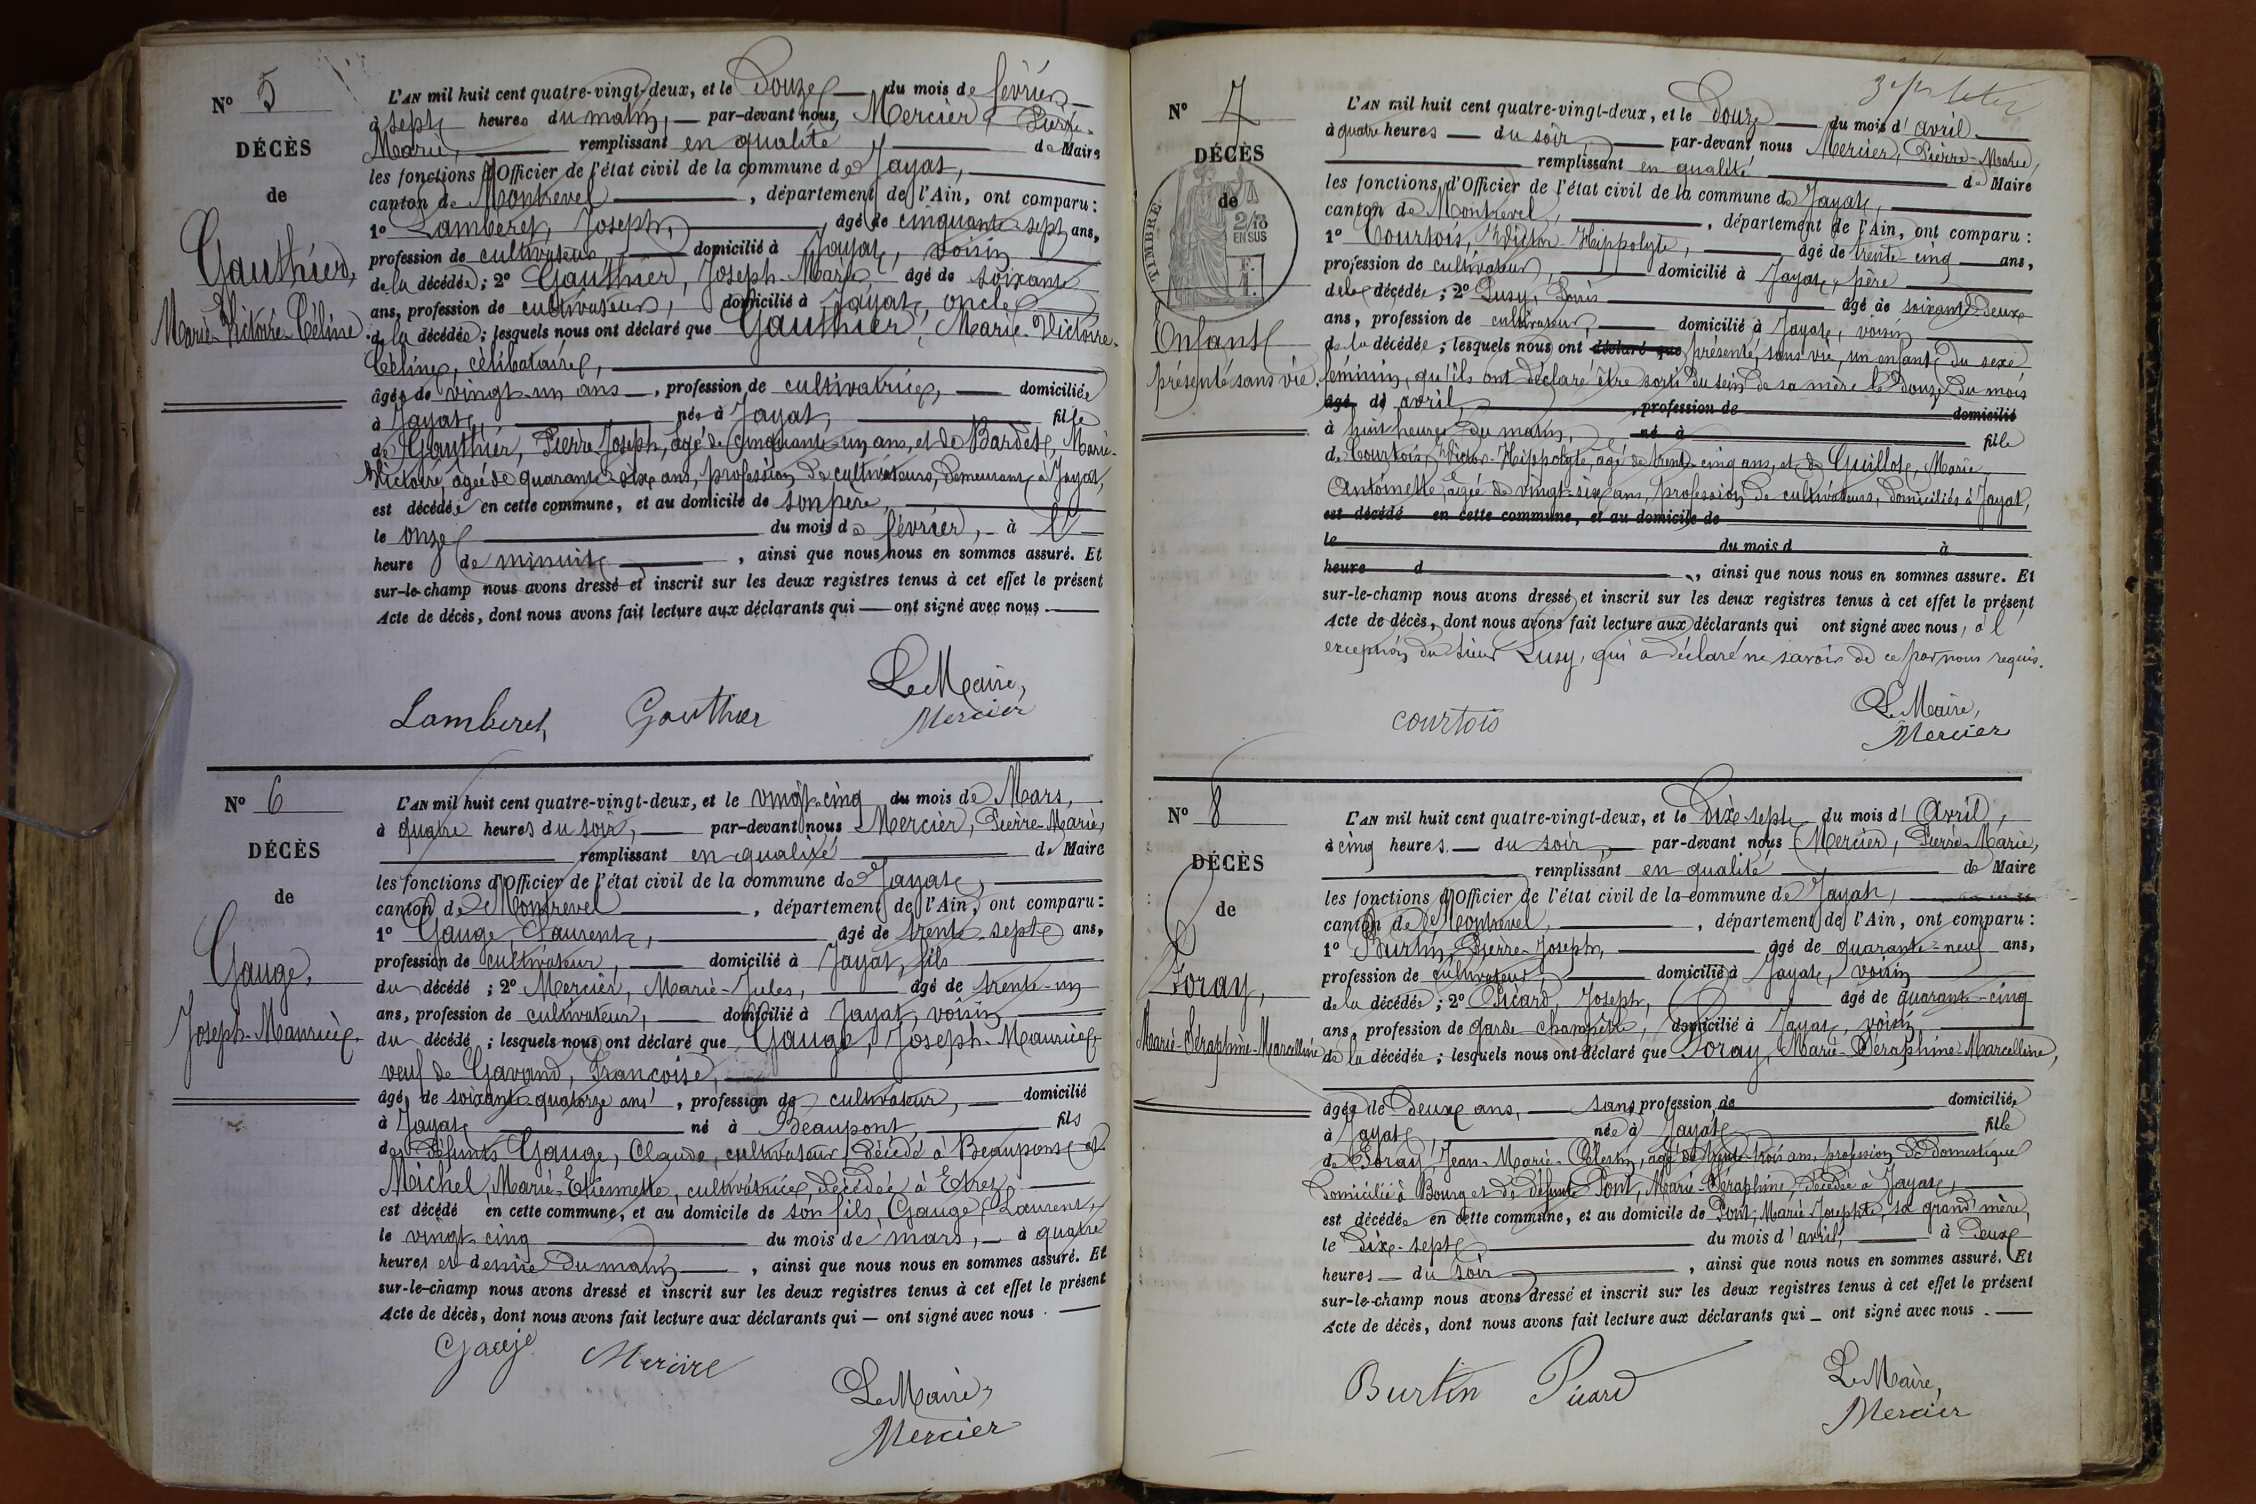 N° 5
DÉCÈS
de
Gauthier,
Marie-Victoire-Céline
L'AN mil huit cent quatre-vingt-deux, et le Douze du mois de février
à sept heures du matin, par-devant nous, Mercier, Pierre-
Marie, remplissant en qualité de Maire
les fonctions d'Officier de l'état civil de la commune de Jayat,
canton de Montrevel, département de l'Ain, ont comparu :
1° Lamberet, Joseph, âgé de cinquante-sept ans,
profession de cultivateur, domicilié à Jayat, voisin
de la décédée ; 2° Gauthier, Joseph-Marie, âgé de soixante
ans, profession de cultivateur, domicilié à Jayat, oncle
de la décédée ; lesquels nous ont déclaré que Gauthier, Marie-Victoire-
Céline, célibataire,
âgée de vingt-un ans, profession de cultivatrice, domiciliée
à Jayat, née à Jayat, fille
de Gauthier, Pierre-Joseph, âgé de cinquante-un ans, et de Bardet, Marie-
Victoire, âgée de quarante-six ans, profession de cultivateurs, demeurant à Jayat,
est décédée en cette commune, et au domicile de son père,
le onze du mois de février, à l'
heure de minuit, ainsi que nous nous en sommes assuré. Et
sur-le-champ nous avons dressé et inscrit sur les deux registres tenus à cet effet le présent
Acte de décès, dont nous avons fait lecture aux déclarants qui — ont signé avec nous.
Le Maire,
Lamberet, Gauthier Mercier
N° 6
DÉCÈS
de
Gauge,
Joseph-Maurice
L'AN mil huit cent quatre-vingt-deux, et le vingt-cinq du mois de Mars,
à quatre heures du soir, par-devant nous Mercier, Pierre-Marie,
remplissant en qualité de Maire
les fonctions d'Officier de l'état civil de la commune de Jayat,
canton de Montrevel, département de l'Ain, ont comparu :
1° Gauge, Laurent, âgé de trente-sept ans,
profession de cultivateur, domicilié à Jayat, fils
du décédé ; 2° Mercier, Marie-Jules, âgé de trente-un
ans, profession de cultivateur, domicilié à Jayat, voisin
du décédé ; lesquels nous ont déclaré que Gauge, Joseph-Maurice,
veuf de Gavand, Françoise,
âgé de soixante-quatorze ans, profession de cultivateur, domicilié
à Jayat né à Beaupont, fils
de défunts Gauge, Claude, cultivateur, décédé à Beaupont et
Michel, Marie-Etiennette, cultivatrice, décédée à Etrez
est décédé en cette commune, et au domicile de son fils, Gauge, Laurent,
le vingt-cinq du mois de mars, à quatre
heures et demie du matin, ainsi que nous nous en sommes assuré. Et
sur-le-champ nous avons dressé et inscrit sur les deux registres tenus à cet effet le présent
Acte de décès, dont nous avons fait lecture aux déclarants qui — ont signé avec nous.
Gauge Mercire
Le Maire,
Mercier
N° 7
DÉCÈS
de
TIMBRE
2/10
EN SUS
Enfant
présenté sans vie
L'AN mil huit cent quatre-vingt-deux, et le douze du mois d'avril
à quatre heures du soir par-devant nous Mercier, Pierre-Marie,
remplissant en qualité de Maire
les fonctions d'Officier de l'état civil de la commune de Jayat,
canton de Montrevel, département de l'Ain, ont comparu :
1° Courtois, Victor-Hippolyte, âgé de trente-cinq ans,
profession de cultivateur, domicilié à Jayat, père
de la décédée ; 2° Lusy, Louis âgé de soixante-deux
ans, profession de cultivateur, domicilié à Jayat, voisin
de la décédée ; lesquels nous ont déclaré que présenté, sans vie, un enfant du sexe
féminin, qu'ils ont déclaré être sorti du sein de sa mère le douze du mois
âgé d'avril, profession de domicilié
à huit heures du matin, né à fille
de Courtois, Victor-Hippolyte, âgé de trente-cinq ans, et de Guillot, Marie-
Antoinette, âgée de vingt-six ans, profession de cultivateurs, domiciliés à Jayat,
est décédé en cette commune, et au domicile de
le du mois d à
heure d, ainsi que nous nous en sommes assuré. Et
sur-le-champ nous avons dressé et inscrit sur les deux registres tenus à cet effet le présent
Acte de décès, dont nous avons fait lecture aux déclarants qui ont signé avec nous, à l'
exception du sieur Lusy, qui a déclaré ne savoir de ce par nous requis.
Le Maire,
courtois Mercier
N° 8
DÉCÈS
de
Foray,
Marie-Séraphine-Marcelline
L'AN mil huit cent quatre-vingt-deux, et le Dix-sept du mois d'Avril,
à cinq heures du soir, par-devant nous Mercier, Pierre-Marie,
remplissant en qualité de Maire
les fonctions d'Officier de l'état civil de la commune de Jayat,
canton de Montrevel, département de l'Ain, ont comparu :
1° Burtin, Pierre-Joseph, âgé de quarante-neuf ans,
profession de cultivateur, domicilié à Jayat, voisin
de la décédée ; 2° Picard, Joseph, âgé de quarante-cinq
ans, profession de garde champêtre, domicilié à Jayat, voisin
de la décédée ; lesquels nous ont déclaré que Foray, Marie-Séraphine-Marcelline,
âgée de deux ans, sans profession de domiciliée
à Jayat, née à Jayat fille
de Foray, Jean-Marie-Célestin, âgé de trente-trois ans, profession de domestique
domicilié à Bourg et de défunte Pont, Marie-Séraphine, décédée à Jayat,
est décédée en cette commune, et au domicile de Pont, Marie-Josephte, sa grand'mère,
le dix-sept du mois d'avril, à deux
heures du soir, ainsi que nous nous en sommes assuré. Et
sur-le-champ nous avons dressé et inscrit sur les deux registres tenus à cet effet le présent
Acte de décès, dont nous avons fait lecture aux déclarants qui — ont signé avec nous.
Burtin Picard
Le Maire,
Mercier